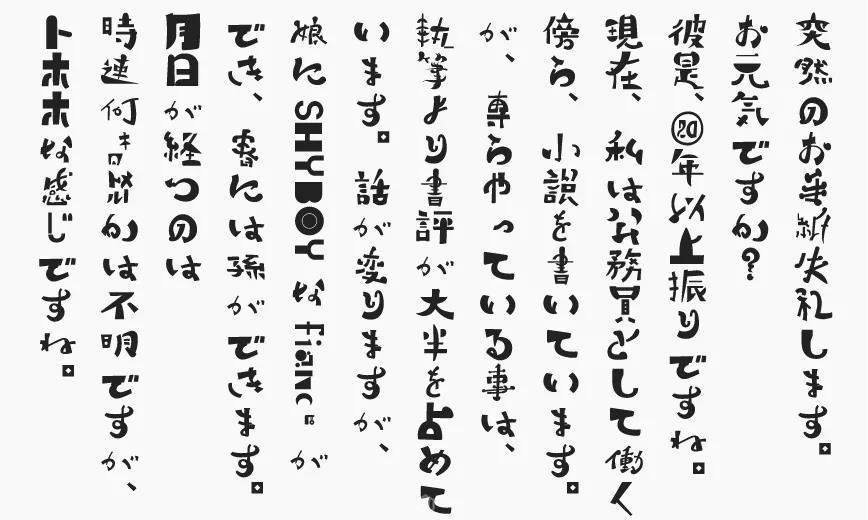 突然のお手紙失礼します。
お元気ですか?
彼是、⑳年以上振りですね。
現在、私は公務員として働く
傍ら、小説を書いています。
が、専らやっている事は、
執筆より書評が大半を占めて
います。話が変りますが、
娘に SHYBOY な fiance が
でき、春には孫ができます。
月日が経つのは
時速何キロかは不明ですが、
トホホな感じですね。